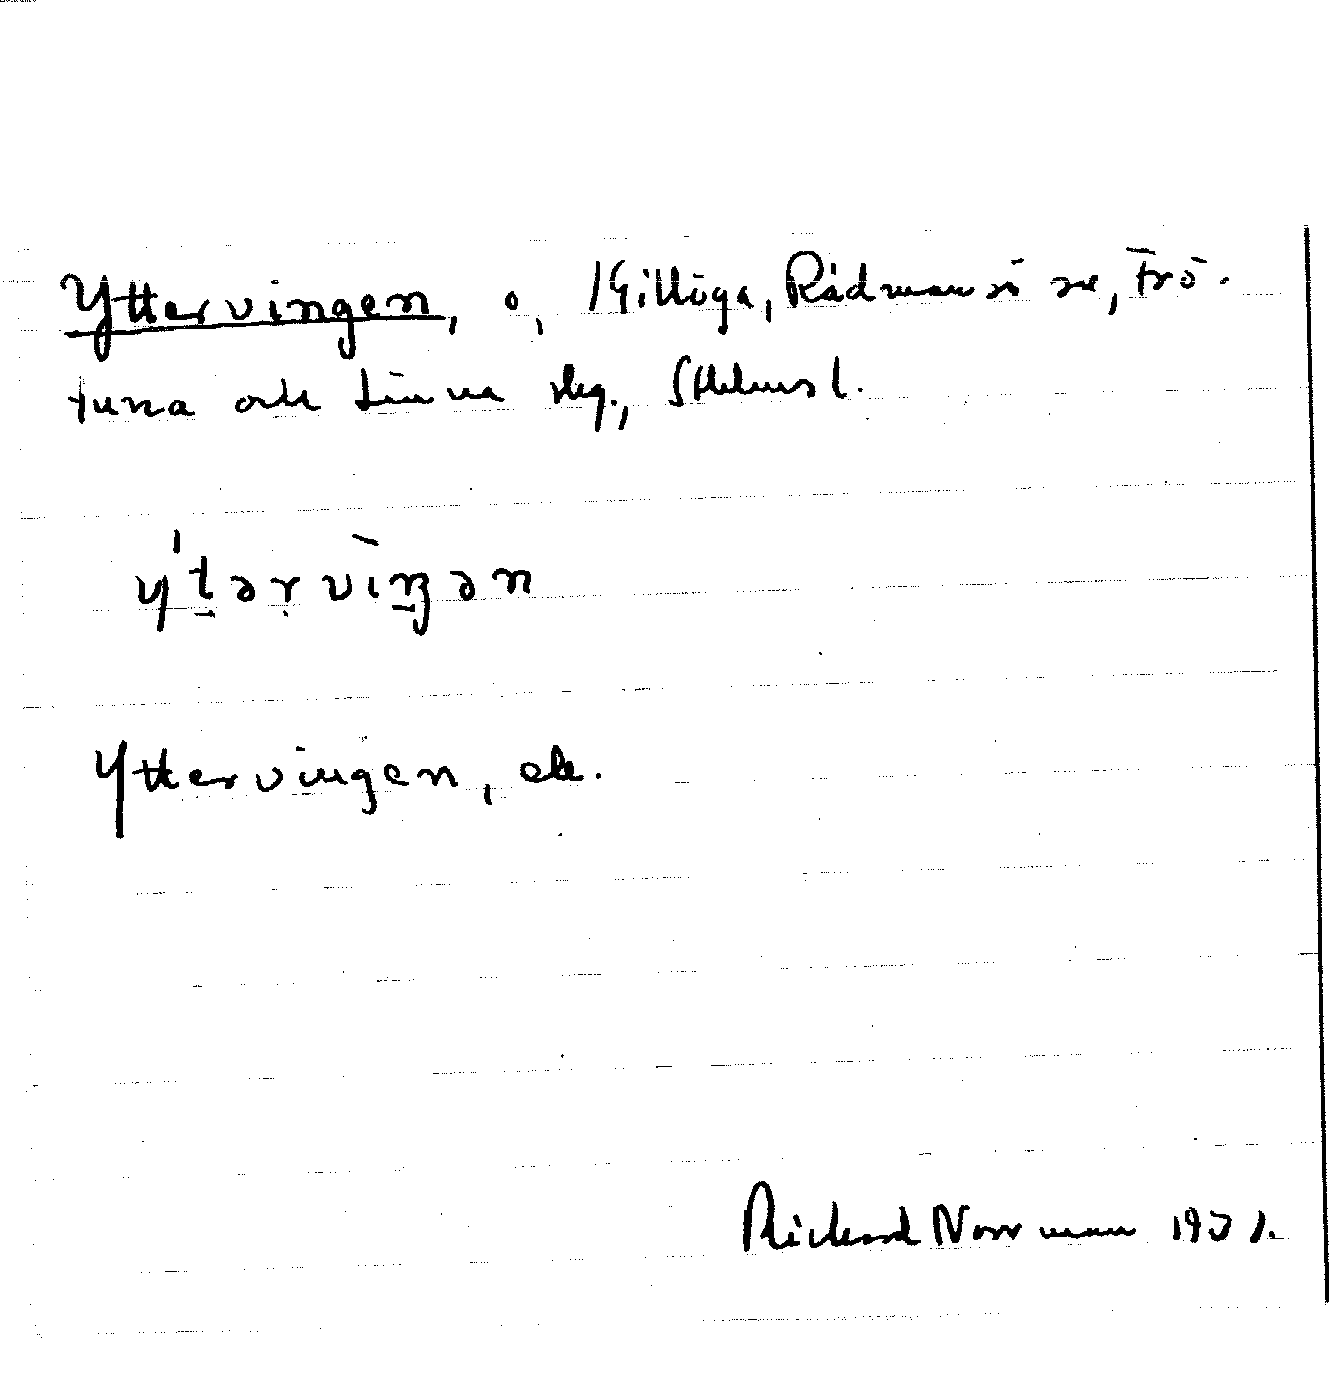 Yttervingen, ö, Gillöga, Rådmansö sn, Frö-
tuna och Länna skg., Sthlms l.
y'tərvìŋən
Yttervingen, ek.
Rickard Norrman 1931.